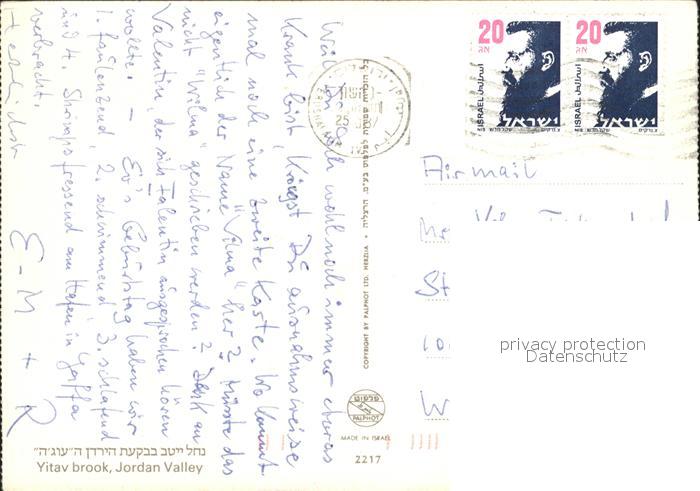 Weil Du doch wohl noch immer etwas
Krank bist, kriegst Du ausnahmsweise
mal noch eine zweite Karte. Wo kommt
eigentlich der Name "Vilma" her? Müsste das
nicht "Wilma" geschrieben werden? Denk an
Valentin, der sich Falentin ausgesprochen hören
wollte. — Ev's Geburtstag haben wir
1. faulenzend, 2. schwimmend 3. schlafend
und 4. Shrimps fressend am Hafen in Yaffa
verbracht.
Herzlichst
E-M + R
נחל ייטב בבקעת הירדן ה"עוג'ה"
Yitav brook, Jordan Valley
COPYRIGHT BY PALPHOT LTD. HERZLIA
פלפוט
PALPHOT
MADE IN ISRAEL
2217
20
אג
ISRAEL اسرائيل
ישראל
20
אג
ISRAEL اسرائيل
ישראל
25
Airmail
privacy protection
Datenschutz